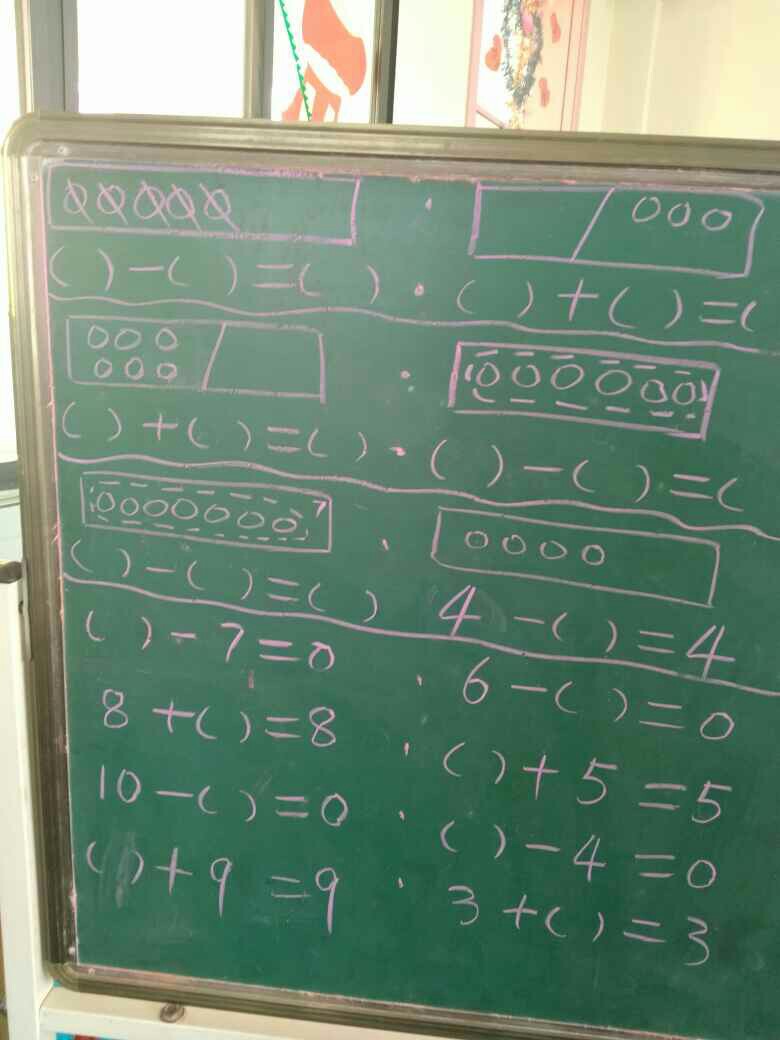 ( ) - ( ) = ( ) · ( ) + ( ) = (
( ) + ( ) = ( ) · ( ) - ( ) = (
( ) - ( ) = ( ) 4 - ( ) = 4
( ) - 7 = 0 · 6 - ( ) = 0
8 + ( ) = 8 · ( ) + 5 = 5
10 - ( ) = 0 · ( ) - 4 = 0
( ) + 9 = 9 · 3 + ( ) = 3